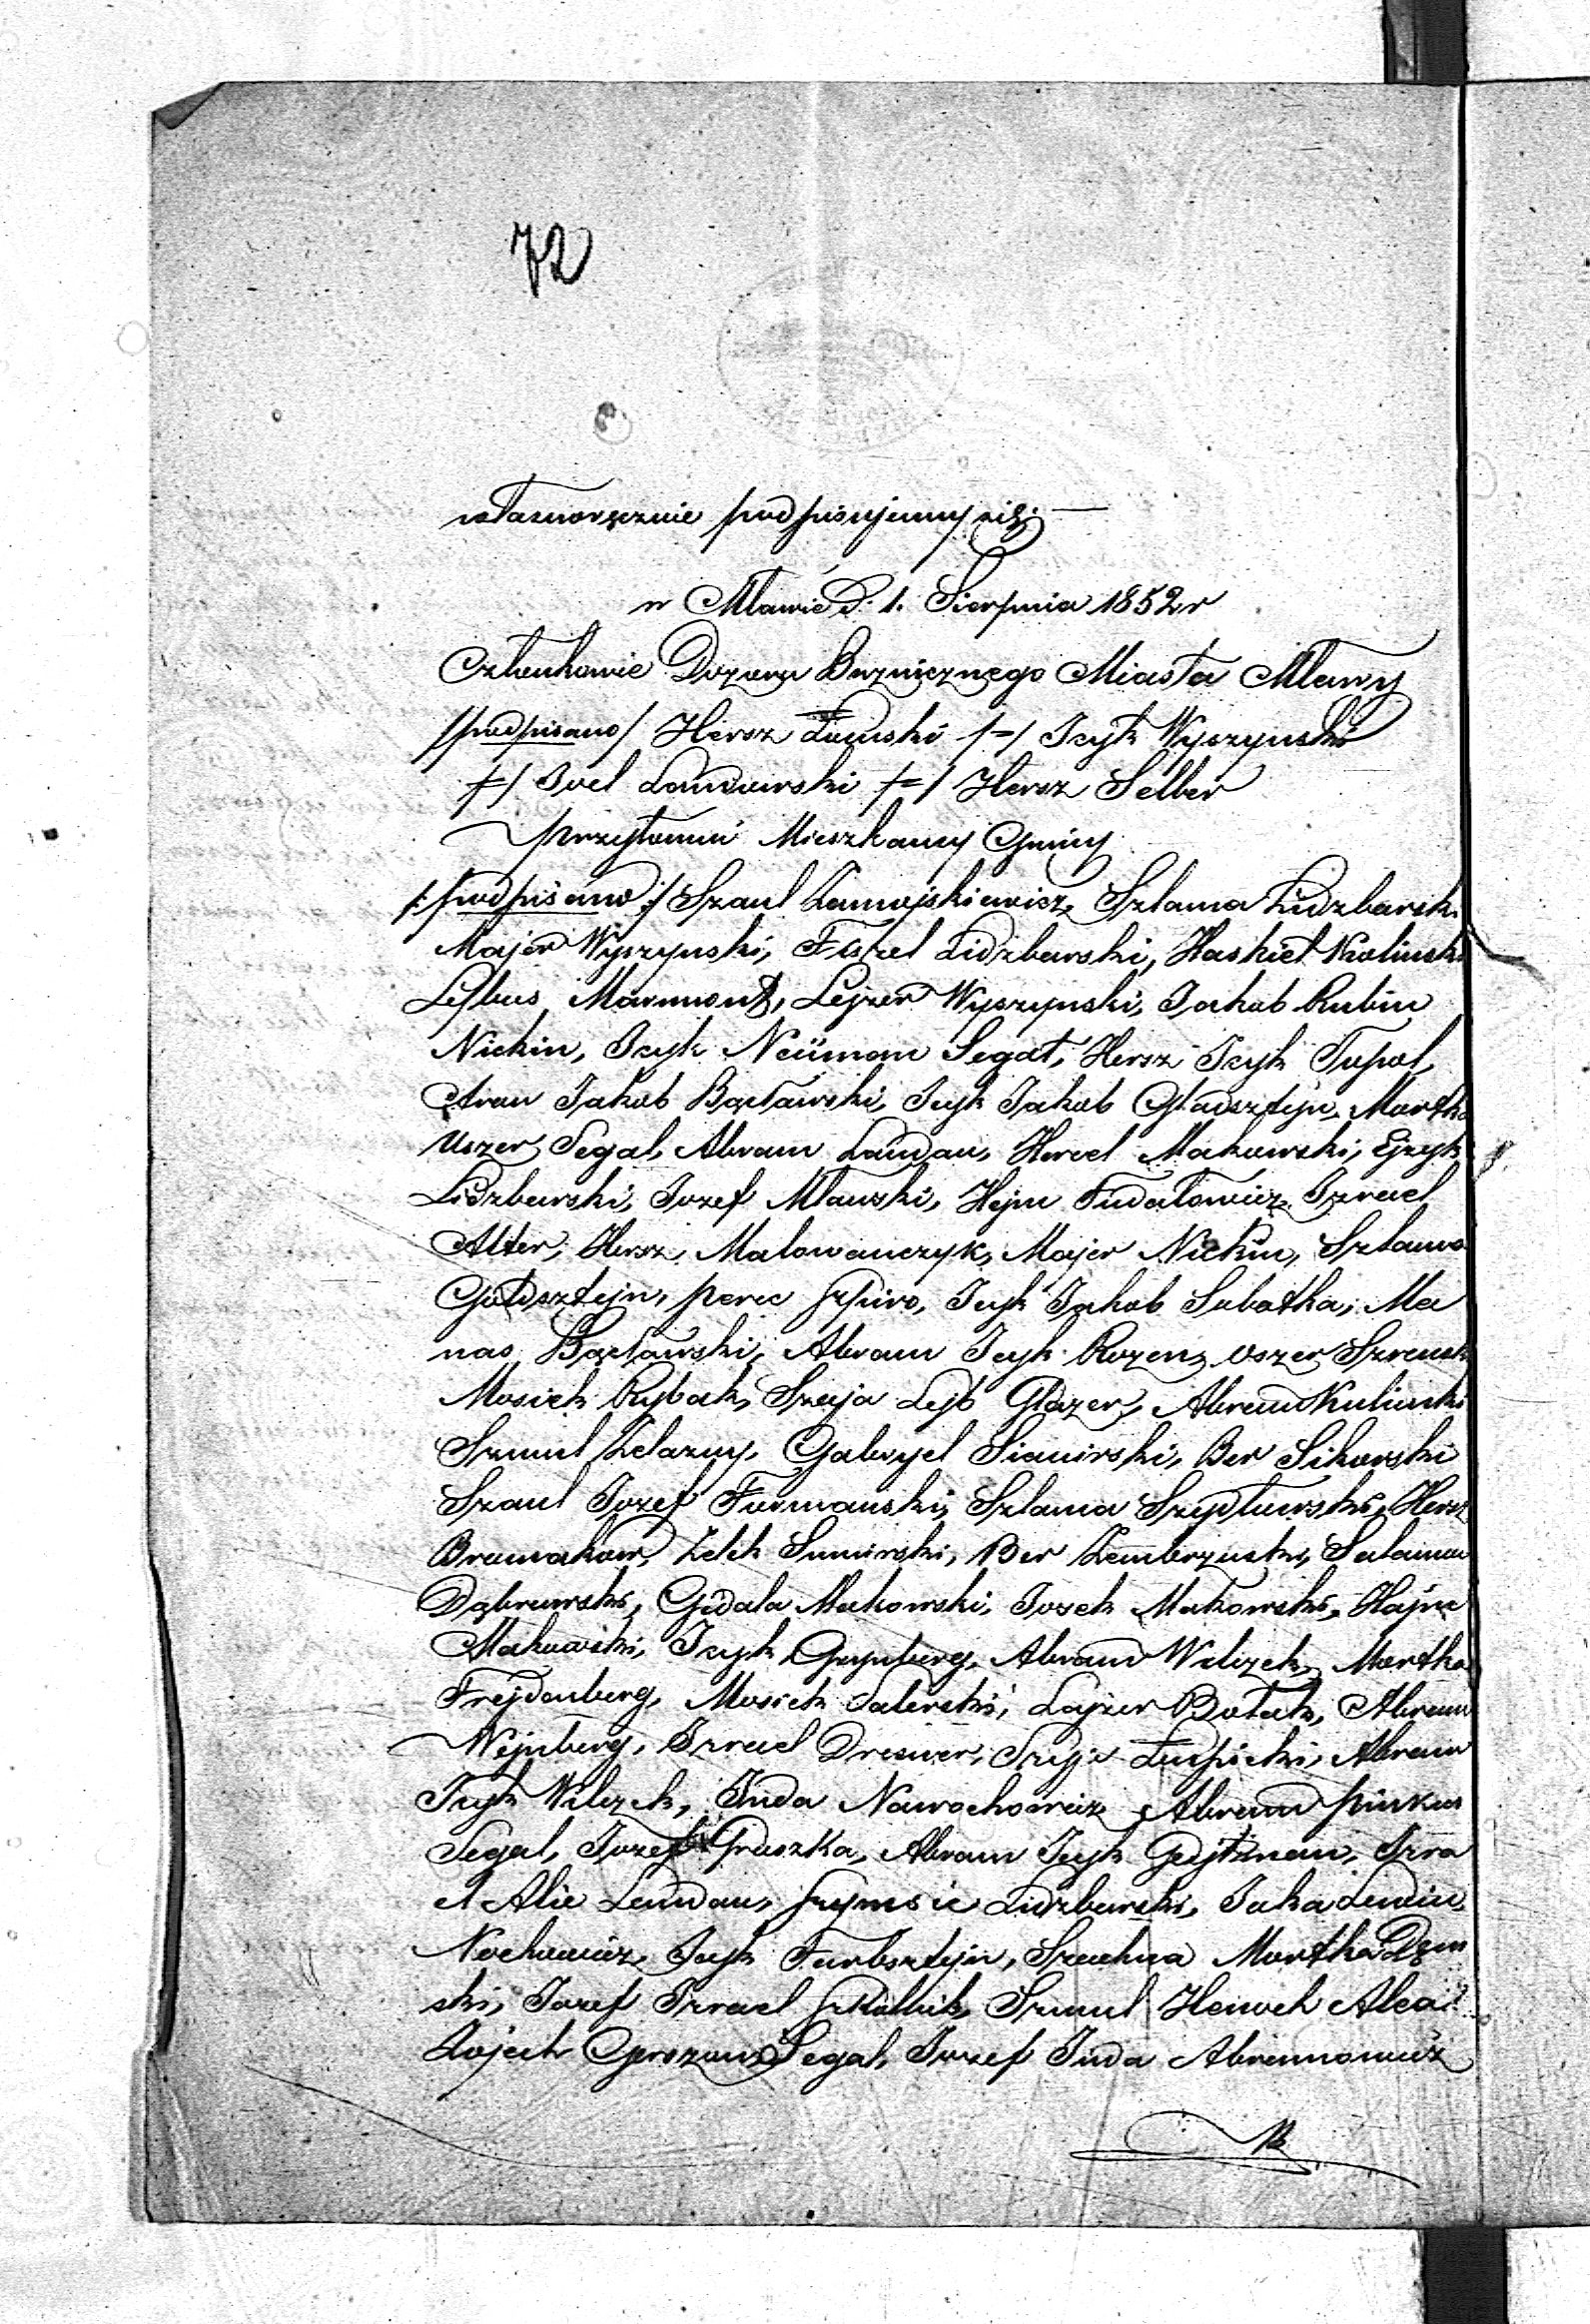 72
własnoręcznie podpisujemy się. —
w Mławie D. 1. Sierpnia 1852 r
Członkowie Dozoru Bożniczego Miasta Mławy
/podpisano/ Hersz Łomski /=/ Icyk Wyszynski
/=/ Joel Landowski /=/ Hersz Selber
przytomni Mieszkancy Gminy
/:podpisano:/ Szaul Zamojskiewicz, Szlama Lidzbarski
Majer Wyszynski, Fiszel Lidzbarski, Haskiel Wolinski
Leybus Marmont, Lejzer Wyszynski, Jakob Rubin
Nickin, Icyk Neüman Segal, Hersz Icyk Topol,
Aron Jakob Bądawski, Icyk Jakob Gladsztejn, Mortka
Uszer Segal, Abram Landau, Hercel Makowski, Ejzyk
Lidzbarski, Jozef Mławski, Hejm Fudałowicz, Izrael
Alter, Hersz Malowanczyk, Majer Nickin, Szlama
Goldsztejn, Perec Szpiro, Icyk Jakob Sobotka, Ma
nas Bądawski, Abram Icyk Rozen, Uszer Szrensk
Mosiek Rybak, Szaja Lejb Glazer, Abram Kulinski
Szmul Zelazny, Gabryel Sianirski, Ber Sikorski
Szaul Jozef Furmanski, Szlama Szydłowski, Hersz
Bromakow, Zelik Sumirski, Ber Zembrzuski, Salamon
Dąbrowski, Gedala Makowski, Josek Makowski, Hajm
Makowski, Icyk Grynberg, Abram Wilczek, Mortka
Frejdenberg, Mosiek Salerski, Lajzer Botak, Abram
Wejnberg, Izrael Dresner, Szyja Łupicki, Abram
Icyk Wilczek, Juda Nawochowicz, Abram Pinkus
Segal, Jozef Gruszka, Abram Icyk Gejtzman, Izra
el Alie Landau, Szymsie Lidzbarski, Lewin
Nochowicz, Icyk Farbsztejn, Szachna Mortka Dem
ski, Jozef Izrael Szkolnik, Szmul Henoch
Gerszon Segal, Jozef Juda Abramowicz